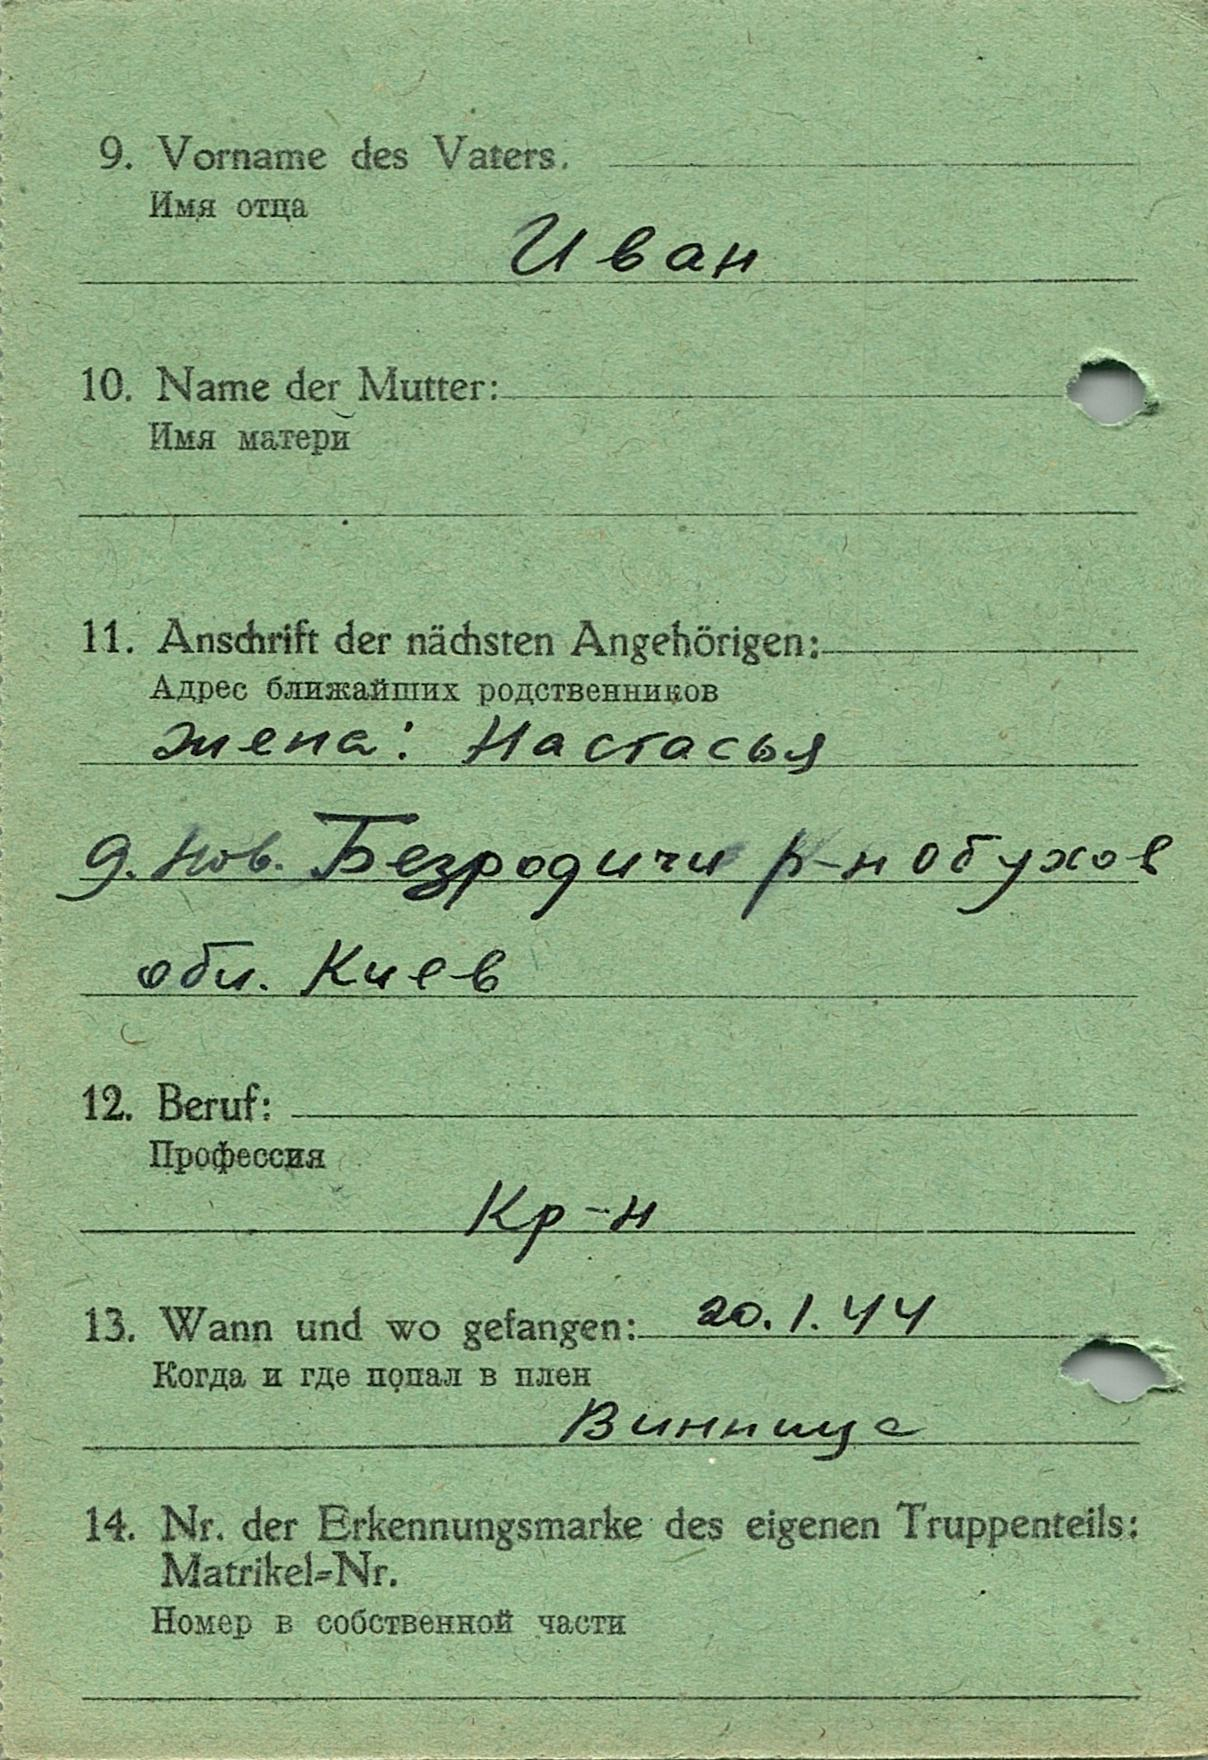 9. Vorname des Vaters.
Имя отца
Иван
10. Name der Mutter:
Имя матери
11. Anschrift der nächsten Angehörigen:
Адрес ближайших родственников
жена: Настасья
д. Нов. Безродичи р-н Обухов
обл. Киев
12. Beruf:
Профессия
Кр-н
13. Wann und wo gefangen: 20.1.44
Когда и где попал в плен
Винница
14. Nr. der Erkennungsmarke des eigenen Truppenteils:
Matrikel-Nr.
Номер в собственной части